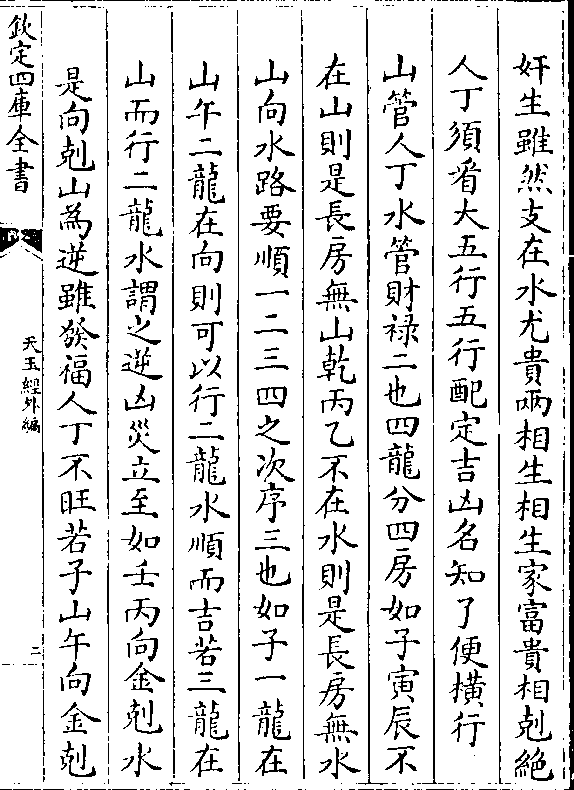 奸生雖然支在水尤貴㖿相生相生家富貴相剋絶
人丁須㸔大五行五行配定吉凶名知了便横行
山管人丁水管財禄二也四龍分四房如子寅辰不
在山則是長房無山乾丙乙不在水則是長房無水
山向水路要順一二三四之次序三也如子一龍在
山午二龍在向則可以行二龍水順而吉若三龍在
山而行二龍水謂之逆凶災立至如壬丙向金剋水
是向剋山為逆雖發福人丁不旺若子山午向金剋
欽定四庫全書
天玉經外編
二